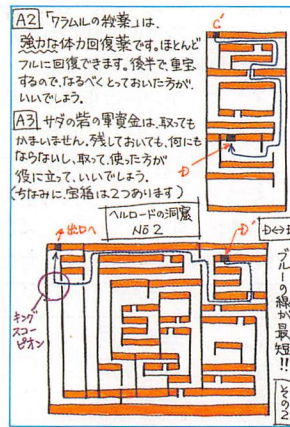 A2 「ワラムルの秘薬」は、
強力な体力回復薬です。ほとんど
フルに回復できます。後半で、重宝
するので、なるべくとっておいた方が、
いいでしょう。
A3 サダの砦の軍資金は、取っても
かまいません。残しておいても、何にも
ならないし、取って、使った方が
役に立って、いいでしょう。
(ちなみに、宝箱は2つあります)
C'
D
ヘルロードの洞窟
No2
出口へ
D'
キング
スコー
ピオン
ブルーの線が最短!!
その2